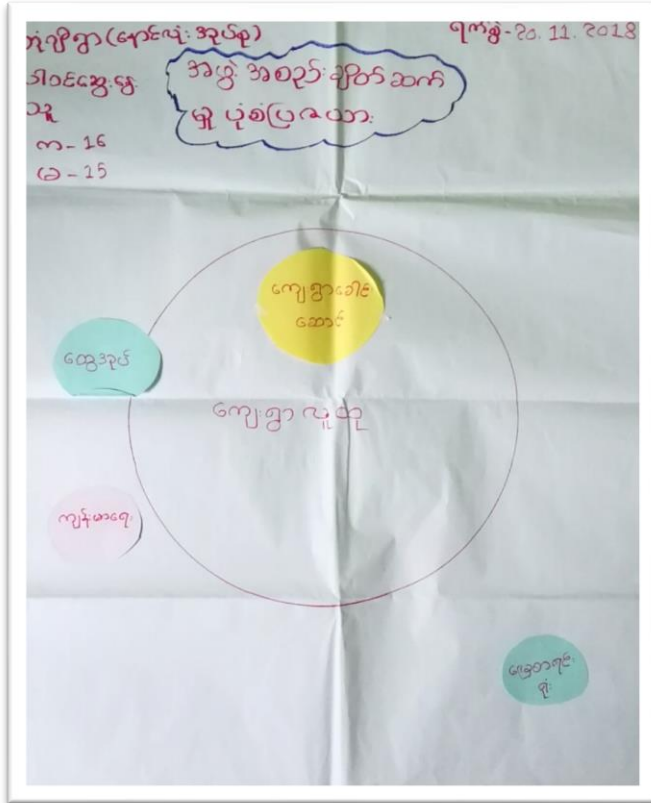 (နောင်လုံး အုပ်စု)
ရက်စွဲ - 20. 11. 2018
ပါဝင်ဆွေးနွေး
သူ
က - 16
ခ - 15
အဖွဲ့ အစည်း ချိတ် ဆက်
မှု ပုံစံပြဇယား
ကျေးရွာခေါင်း
ဆောင်
ထွေအုပ်
ကျေးရွာ လူထု
ကျန်းမာရေး
ရုံး